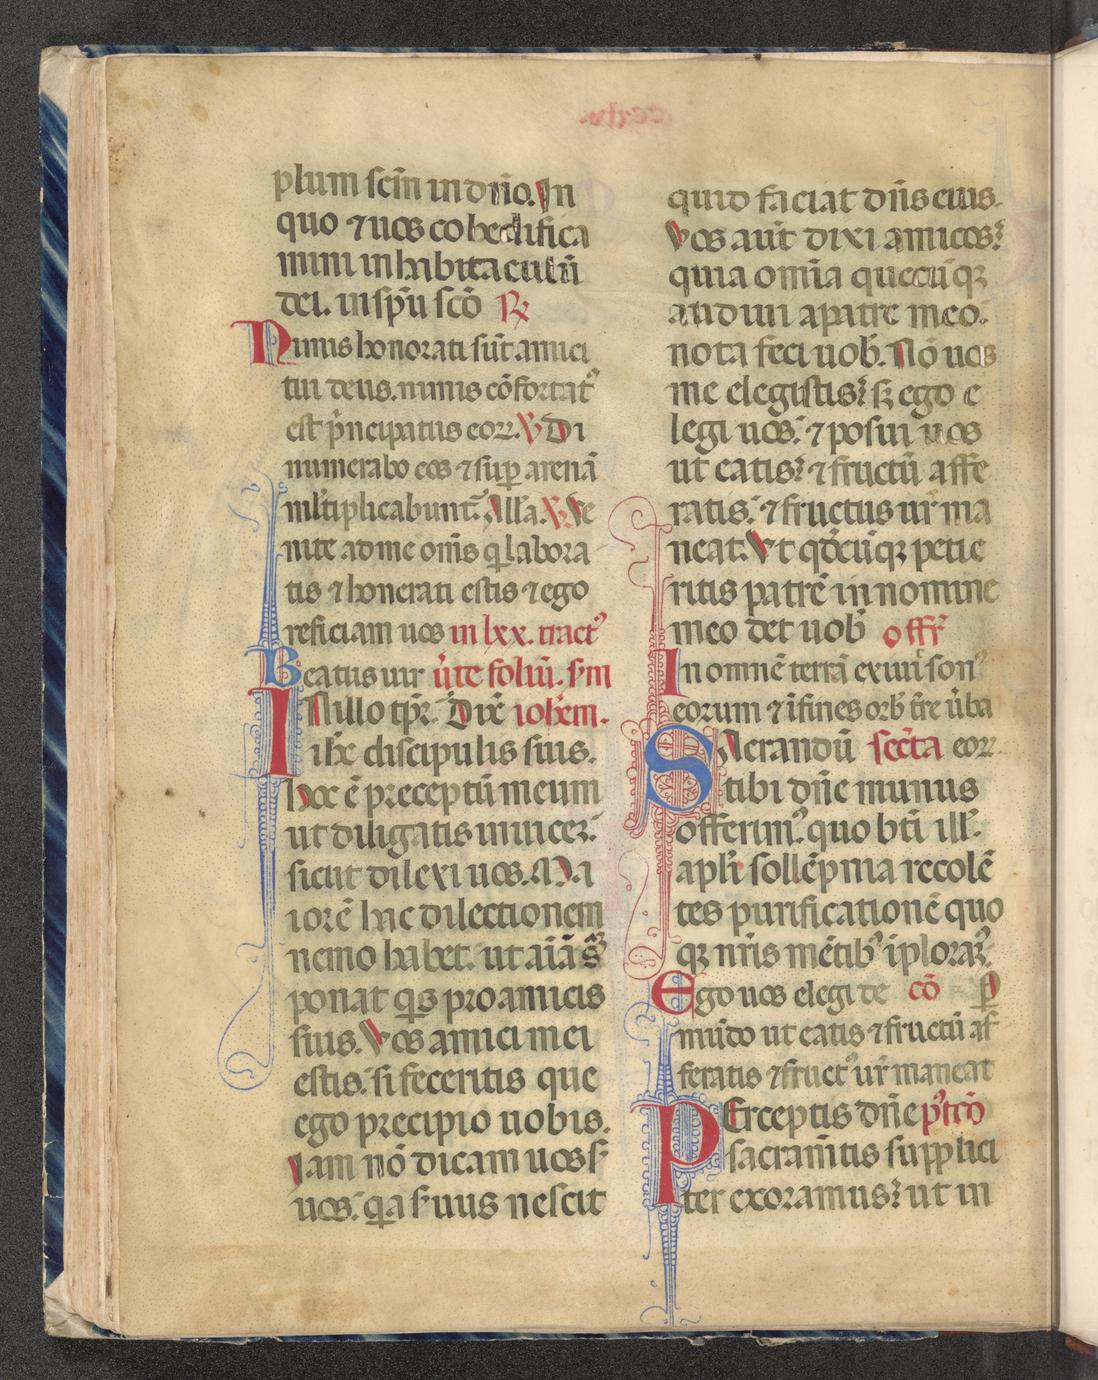 plum scm̄ in dn̄o. In
quo ⁊ uos cohedifica
mini in habitaculū
dei. in sp̄u sc̄o ℞
Nimis honorati sūt amici
tui deus. nimis cōfortat᷒
est p̄ncipatus eoꝝ. ℣ Di
numerabo eos ⁊ suꝑ arenā
ml̓tiplicabunt᷒. All̓a. ℣ Ve
nite ad me om̄s q̲ labora
tis ⁊ honerati estis ⁊ ego
reficiam uos in lxx. tract᷒
Beatus uir ūte foliū. s̄m
In illo tp̄r. Dix̄ ioh̄em.
ih̄c discipulis suis.
hoc ē preceptū meum
ut diligatis inuicez.
sicut dilexi uos. Ma
iorē hac dilectionem
nemo habet. ut aīaz suā
ponat qi̲s pro amicis
suis. Vos amici mei
estis. si feceritis que
ego precipio uobis.
Iam nō dicam uos s̓
uos. qa s̓uus nescit
quid faciat dn̄s eius.
Vos aut̄ dixi amicos:
quia omīa quecūqꝫ
audiui a patre meo.
nota feci uob̄. Nō uos
me elegistis: sꝫ ego e
legi uos. ⁊ posui uos
ut eatis: ⁊ fructū affe
ratis. ⁊ fructus ur̄ ma
neat. Vt qd̄cūqꝫ petie
ritis patrē in nomine
meo det uob̄ off̄
In omnē terrā exiuit son᷒
eorum ⁊ ī fines orb̄ tr̄e ūba
SAcrandū sec̄ta eoꝝ
tibi dn̄e munus
offerim᷒. quo bt̄i ill̓.
apl̓i sollēpnia recolē
tes purificationē quo
qꝫ nr̄is mētib᷒ īploraꝫ.
Ego uos elegi de cō
mūdo ut eatis ⁊ fructū af
feratis ⁊ fruct᷒ ur̄ maneat
PErceptis dn̄e p᷒tcō
sacram̄tis supplici
ter exoramus: ut in